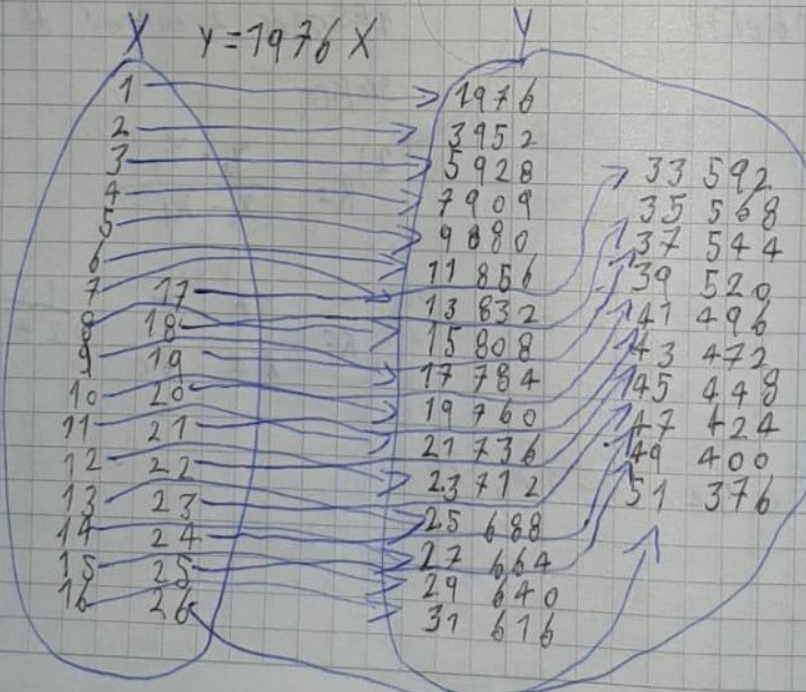 X Y=1976X Y
1
2
3
4
5
6
7
8
9
10
11
12
13
14
15
16
17
18
19
20
21
22
23
24
25
26
1976
3952
5928
7909
9880
11 856
13 832
15 808
17 784
19 760
21 736
23 712
25 688
27 664
29 640
31 616
33 592
35 568
37 544
39 520
41 496
43 472
45 448
47 424
49 400
51 376